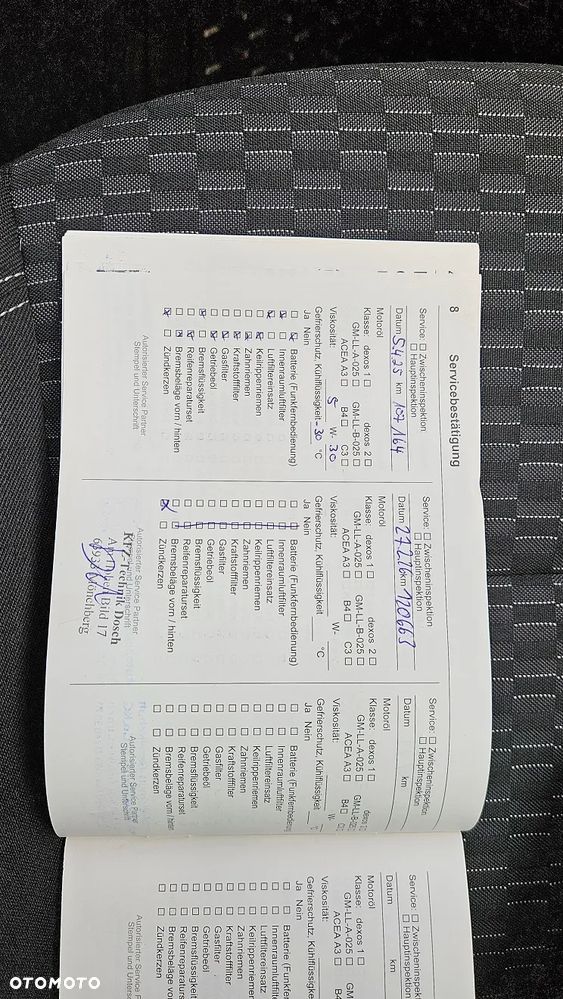 8 Servicebestätigung
Service: ☐ Zwischeninspektion
☐ Hauptinspektion
Datum 5.4.25 km 107164
Motoröl
Klasse: dexos 1 ☐ dexos 2 ☐
GM-LL-A-025 ☐ GM-LL-B-025 ☐
ACEA A3 ☐ B4 ☐ C3 ☐
Viskosität: 5 W- 30
Gefrierschutz, Kühlflüssigkeit -30 °C
Ja Nein
Batterie (Funkfernbedienung)
Innenraumluftfilter
Luftfiltereinsatz
Keilrippenriemen
Zahnriemen
Kraftstofffilter
Gasfilter
Getriebeöl
Bremsflüssigkeit
Reifenreparaturset
Bremsbeläge vorn / hinten
Zündkerzen
Autorisierter Service Partner
Stempel und Unterschrift
Service: ☐ Zwischeninspektion
☐ Hauptinspektion
Datum km 120663
Motoröl
Klasse: dexos 1 ☐ dexos 2 ☐
GM-LL-A-025 ☐ GM-LL-B-025 ☐
ACEA A3 ☐ B4 ☐ C3 ☐
Viskosität: W-
Gefrierschutz, Kühlflüssigkeit °C
Ja Nein
Batterie (Funkfernbedienung)
Innenraumluftfilter
Luftfiltereinsatz
Keilrippenriemen
Zahnriemen
Kraftstofffilter
Gasfilter
Getriebeöl
Bremsflüssigkeit
Reifenreparaturset
Bremsbeläge vorn / hinten
Zündkerzen
Autorisierter Service Partner
Stempel und Unterschrift
KFZ-Technik Dosch
Bild 17
Mönchberg
Service: ☐ Zwischeninspektion
☐ Hauptinspektion
Datum km
Motoröl
Klasse: dexos 1 ☐ dexos 2
GM-LL-A-025 ☐ GM-LL-B-025
ACEA A3 ☐ B4 ☐
Viskosität: W-
Gefrierschutz, Kühlflüssigkeit
Ja Nein
☐ ☐ Batterie (Funkfernbedienung
☐ ☐ Innenraumluftfilter
☐ ☐ Luftfiltereinsatz
☐ ☐ Keilrippenriemen
☐ ☐ Zahnriemen
☐ ☐ Kraftstofffilter
☐ ☐ Gasfilter
☐ ☐ Getriebeöl
☐ ☐ Bremsflüssigkeit
☐ ☐ Reifenreparaturset
☐ ☐ Bremsbeläge vorn / hinten
☐ ☐ Zündkerzen
Autorisierter Service Partner
Stempel und Unterschrift
Service: ☐ Zwischeninspektion
☐ Hauptinspektion
Datum km
Motoröl
Klasse: dexos 1 ☐
GM-LL-A-025
ACEA A3 ☐
Viskosität:
Gefrierschutz, Kühlflüssigkeit
Ja Nein
☐ ☐ Batterie (Funkfernbe
☐ ☐ Innenraumluftfilter
☐ ☐ Luftfiltereinsatz
☐ ☐ Keilrippenriemen
☐ ☐ Zahnriemen
☐ ☐ Kraftstofffilter
☐ ☐ Gasfilter
☐ ☐ Getriebeöl
☐ ☐ Bremsflüssigkeit
☐ ☐ Reifenreparaturse
☐ ☐ Bremsbeläge vo
☐ ☐ Zündkerzen
Autorisierter Service Par
Stempel und Unters
OTOMOTO